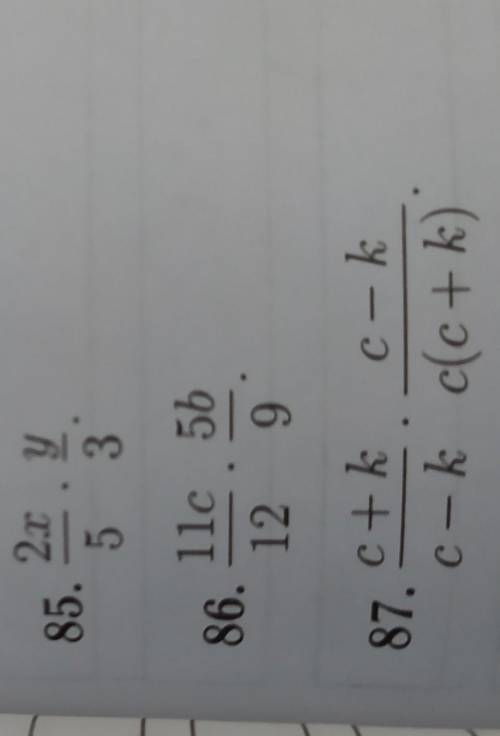 85. \frac{2x}{5} \cdot \frac{y}{3}.
86. \frac{11c}{12} \cdot \frac{5b}{9}.
87. \frac{c+k}{c-k} \cdot \frac{c-k}{c(c+k)}.